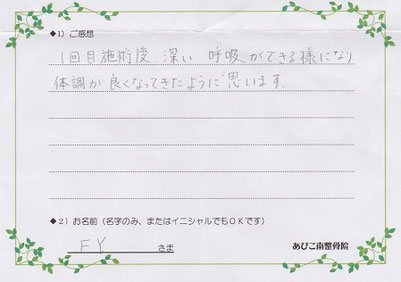 ◆1）ご感想
1回目施術後、深い 呼吸ができる様になり
体調が良くなってきたように思います。
◆2）お名前（名字のみ、またはイニシャルでもOKです）
F Y さま
あびこ南整骨院